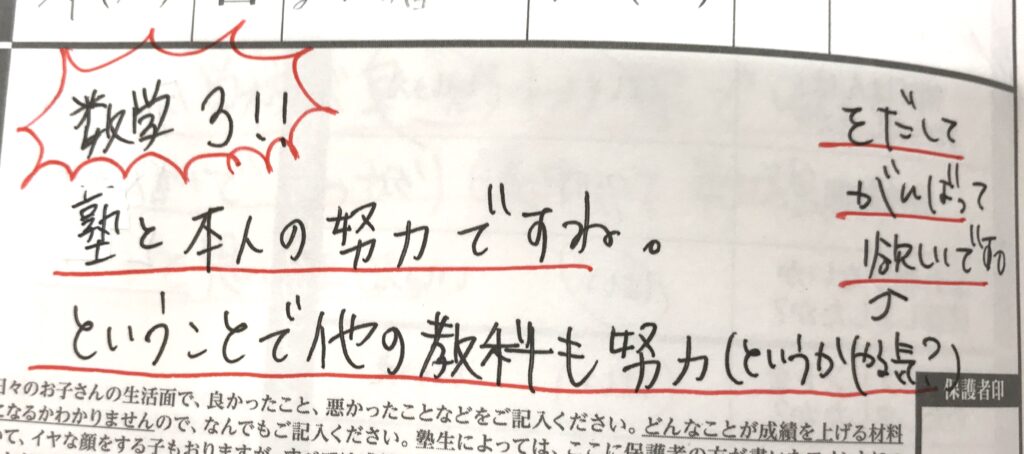 数学 3!!
塾と本人の努力ですね。
ということで他の教科も努力(というか(やる気?)
をだして
がんばって
欲しいです。
保護者印
日々のお子さんの生活面で、良かったこと、悪かったことなどをご記入ください。どんなことが成績を上げる材料
になるかわかりませんので、なんでもご記入ください。塾生によっては、ここに保護者の方が書いた
て、イヤな顔をする子もおりますが、